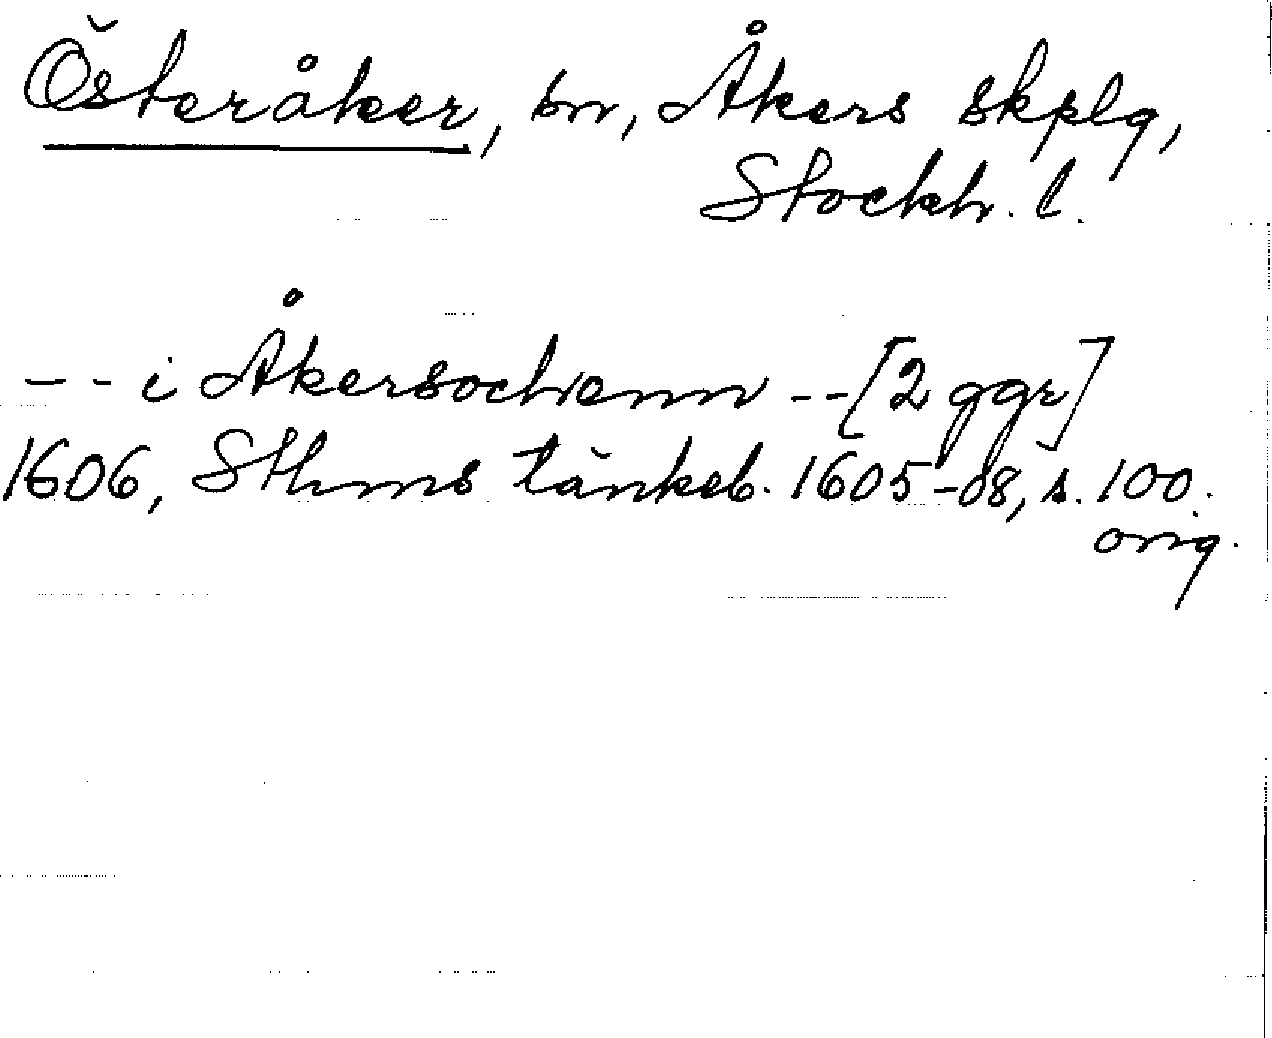 Österåker, sn, Åkers skplg,
Stockh. l.
-- i Åkersochenn --[2 ggr]
1606, Sthms tänkeb. 1605-08, s. 100.
orig.